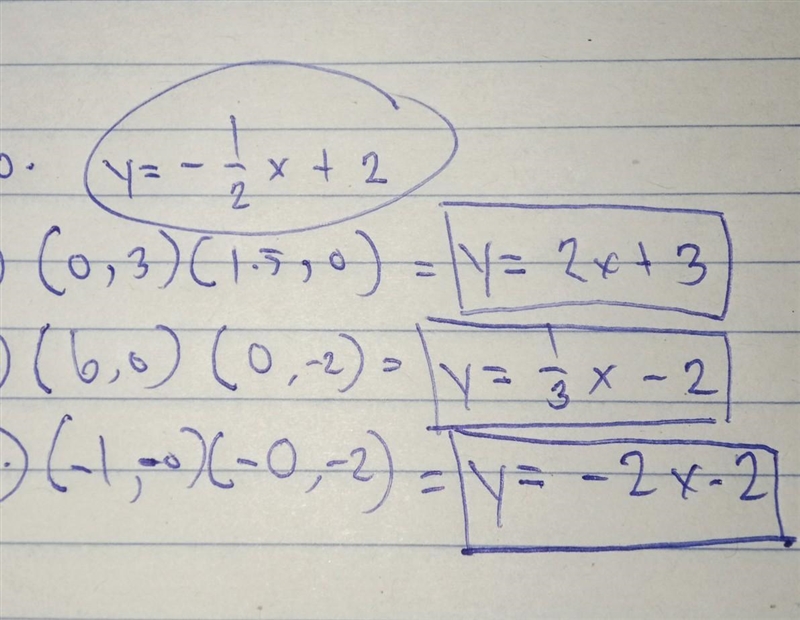 0. y = - 1/2 x + 2
) (0, 3) (1.5, 0) = y = 2x + 3
) (6, 0) (0, -2) = y = 1/3 x - 2
.) (-1, -0) (-0, -2) = y = -2x - 2